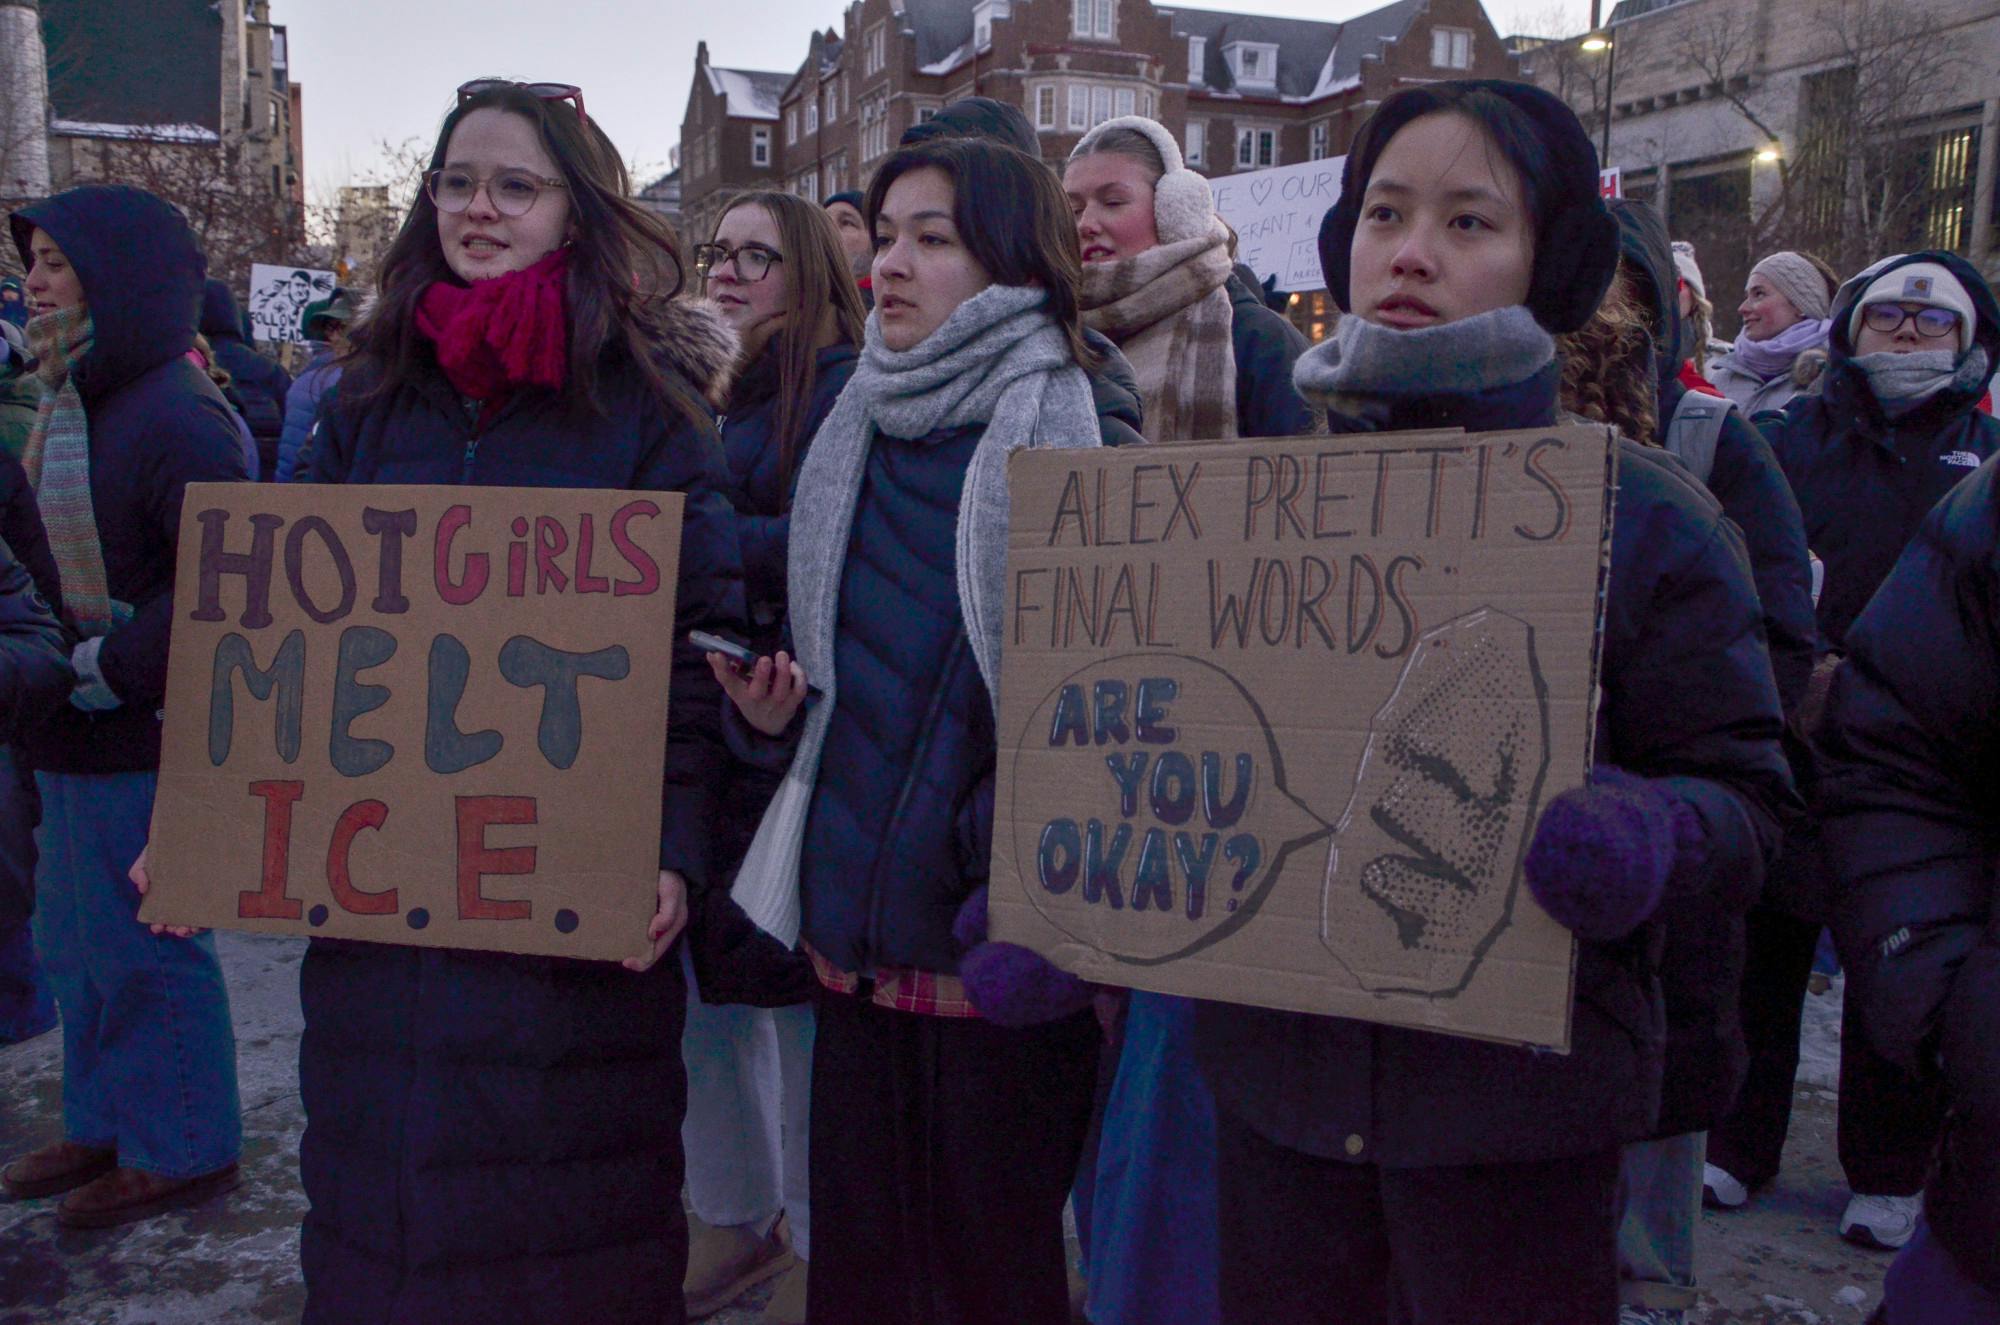 HOT GIRLS
MELT
I.C.E.
ALEX PRETTI'S
FINAL WORDS:
ARE
YOU
OKAY?
FOLLOW
LEAD
♡ OUR
THE
NORTH
FACE
700